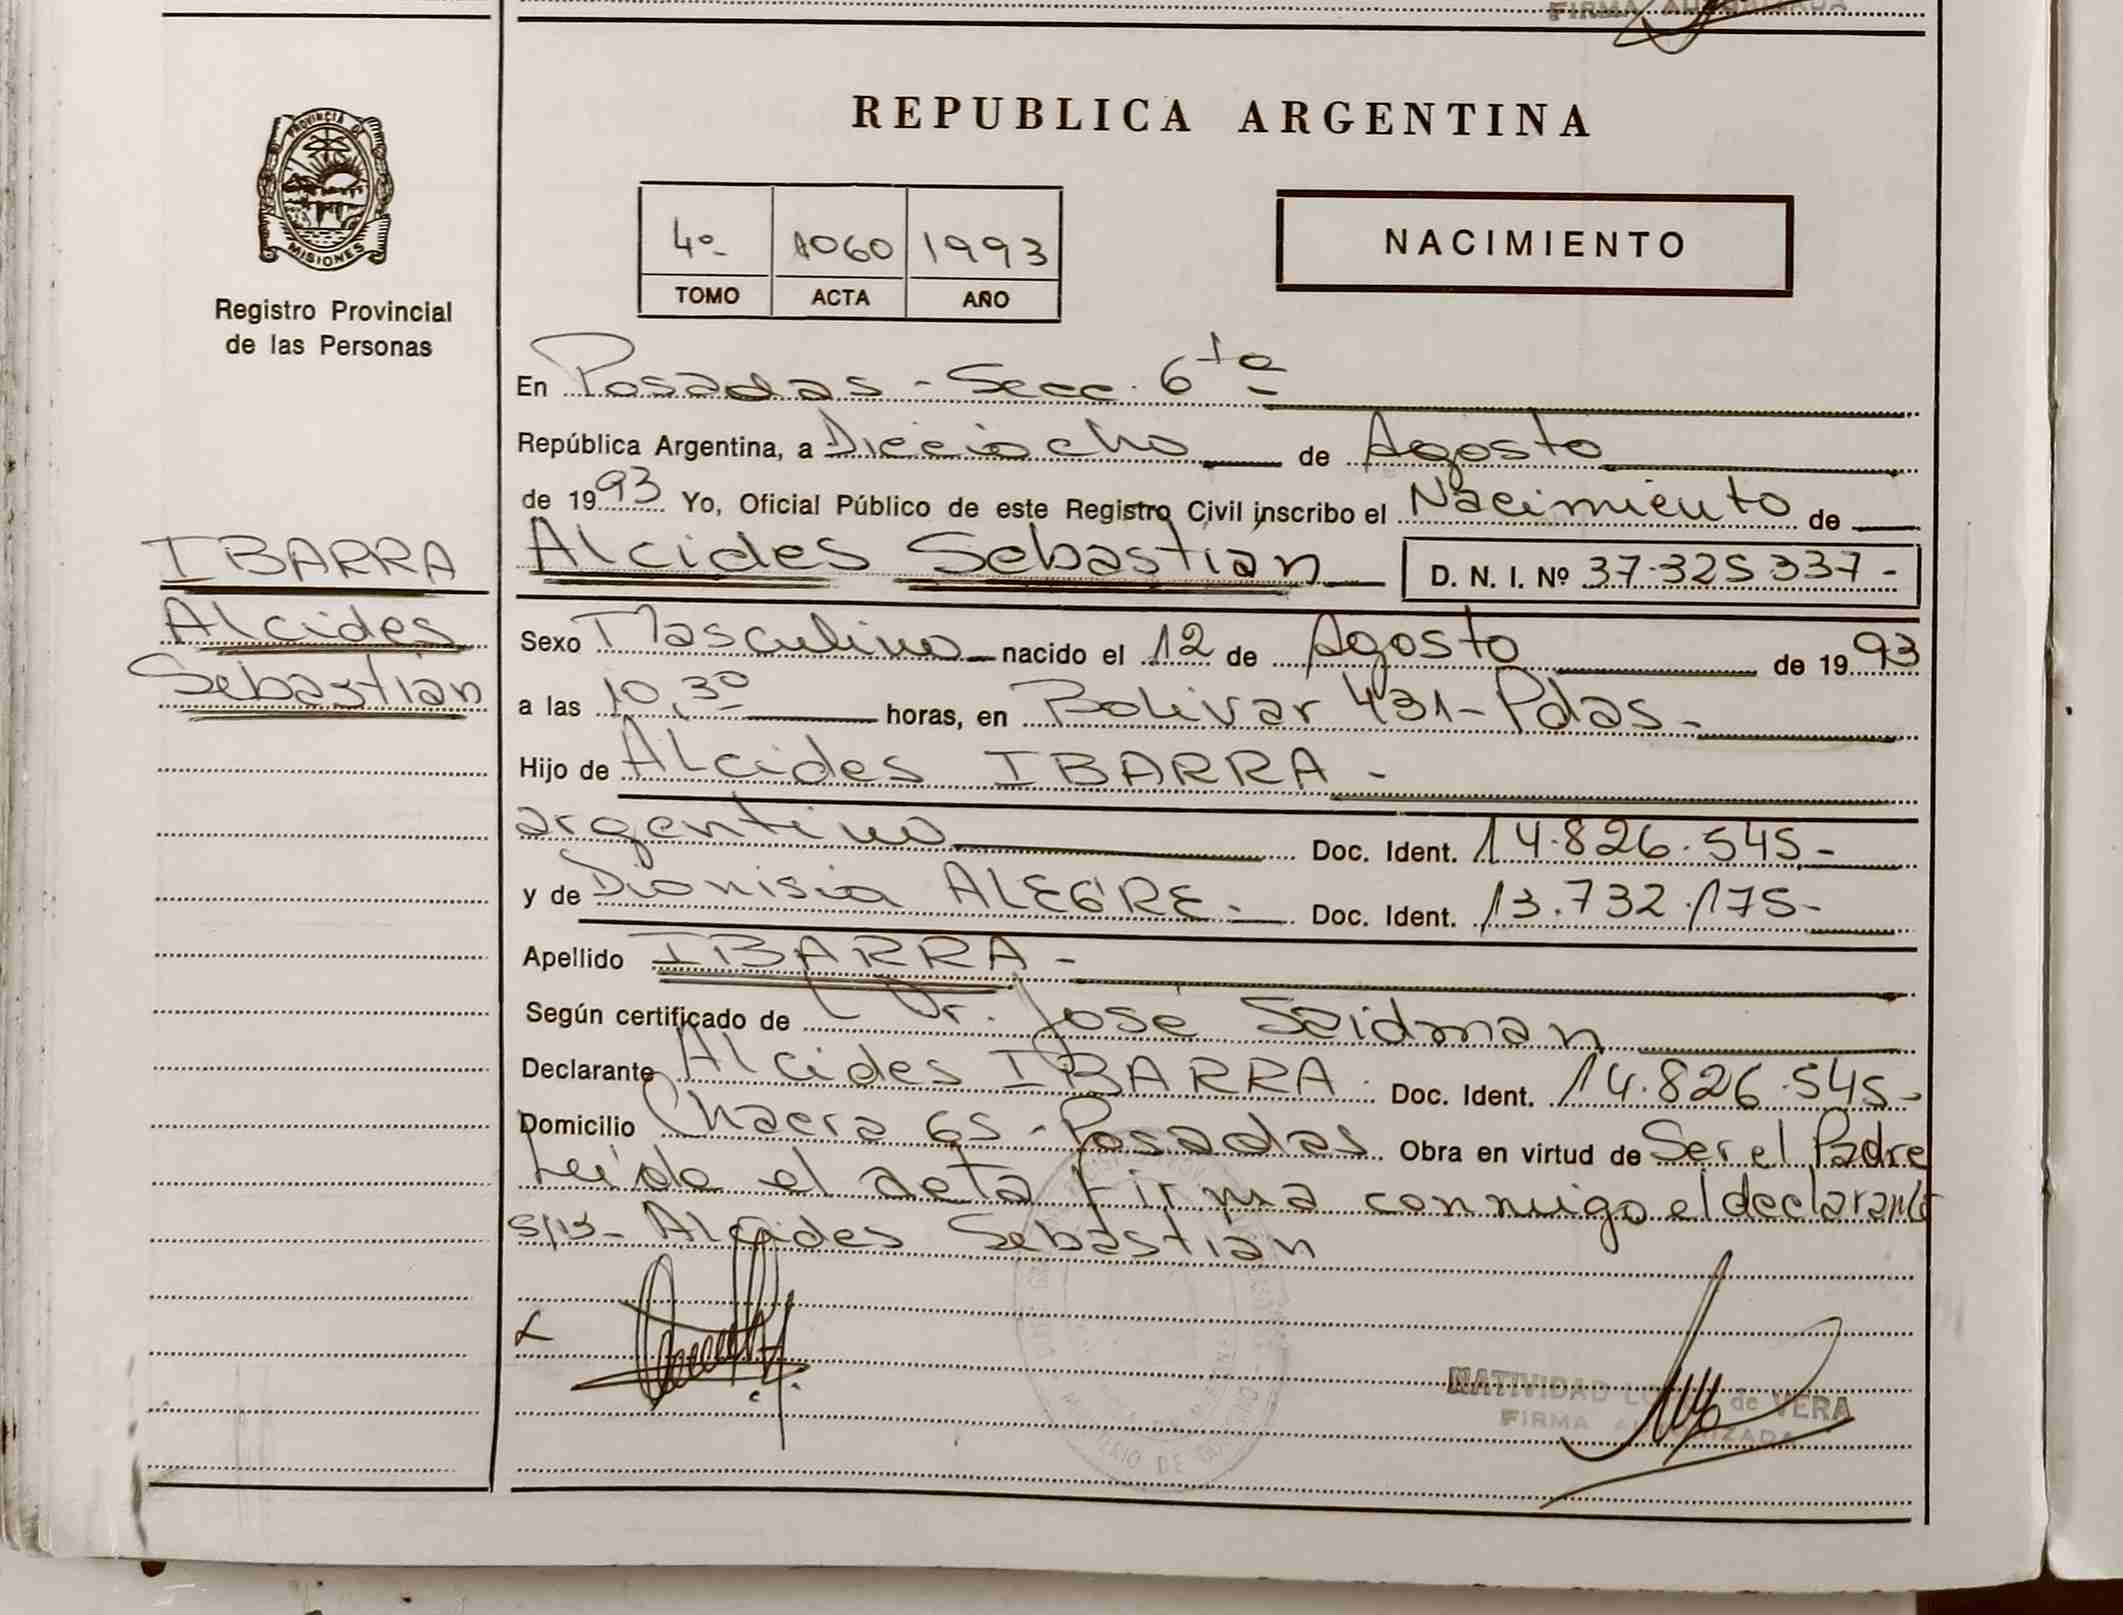 FIRMA AUTORIZADA
PROVINCIA DE
MISIONES
Registro Provincial
de las Personas
IBARRA
Alcides
Sebastian
REPUBLICA ARGENTINA
4º 1060 1993
TOMO ACTA AÑO
NACIMIENTO
En Posadas - Secc. 6ta
República Argentina, a Dieciocho de Agosto
de 1993 Yo, Oficial Público de este Registro Civil inscribo el Nacimiento de
Alcides Sebastian D. N. I. Nº 37.325337-
Sexo Masculino nacido el 12 de Agosto de 1993
a las 10,30 horas, en Bolivar 431-Pdas-
Hijo de Alcides IBARRA -
argentino Doc. Ident. 14.826.545-
y de Dionisia ALEGRE. Doc. Ident. 13.732.175-
Apellido IBARRA -
Según certificado de Dr. José Seidman
Declarante Alcides IBARRA. Doc. Ident. 14.826.545-
Domicilio Chacra 65 - Posadas Obra en virtud de Ser el Padre
Leído el acta firma conmigo el declarante
S/B- Alcides Sebastian
NATIVIDAD de VERA
FIRMA AUTORIZADA